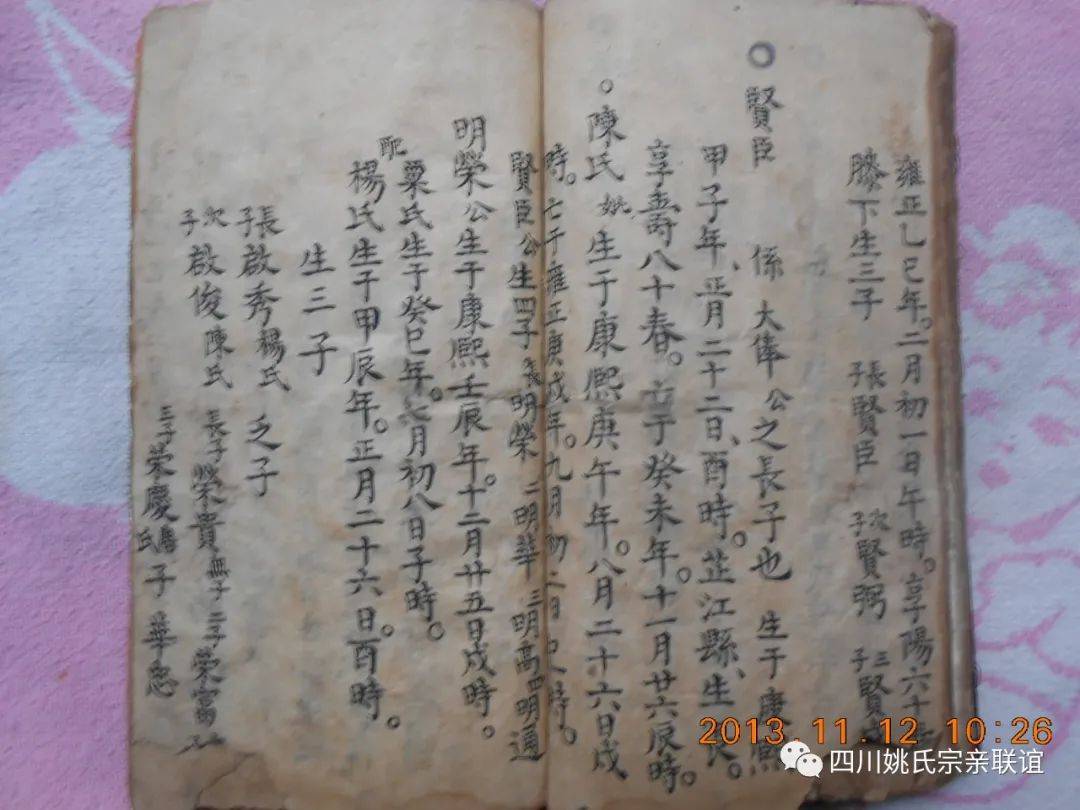 雍正乙巳年。二月初一日午時。享陽六十
膝下生三子 長子賢臣 次子賢弼 三子賢
○賢臣 係大俸公之長子也 生于康熙
甲子年、正月二十二日、酉時。芷江縣、生長。
享壽八十春。亡于癸未年。十一月廿六辰時。
○陳氏妣生于康熙庚午年。八月二十六日戌
時。亡于雍正庚戌年。九月初二日 時。
賢臣公生四子 長明榮 二明華 三明高 四明通
明榮公生于康熙壬辰年。十二月廿五日戌時。
配粟氏生于癸巳年。七月初八日子時。
楊氏生于甲辰年。正月二十六日。酉時。
生三子
長子啟秀楊氏 乏子
次子啟俊陳氏 長子榮貴無子 二子榮富
三子榮慶 氏子華忠
2013.11.12 10:26
四川姚氏宗亲联谊